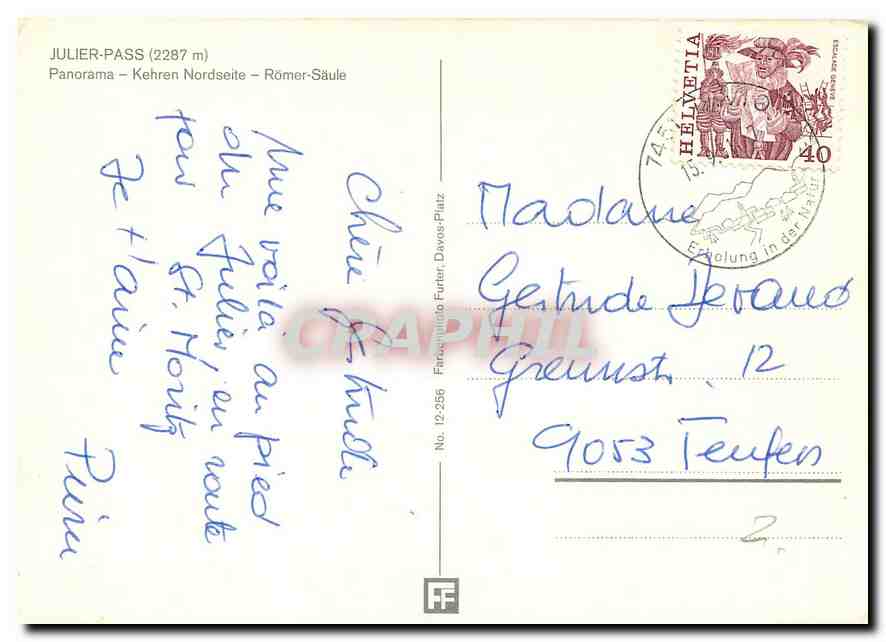 JULIER-PASS (2287 m)
Panorama – Kehren Nordseite – Römer-Säule
Chère Gertrude
Mme voilà au pied
du Julier, en route
pour St. Moritz
Je t'aime
No. 12-256 Farbenphoto Furter, Davos-Platz
FF
HELVETIA
ESCALADE GENÈVE
40
Erholung in der Natur
Madame
Gertrude
12
9053 Teufen
2.
CPAPHIL